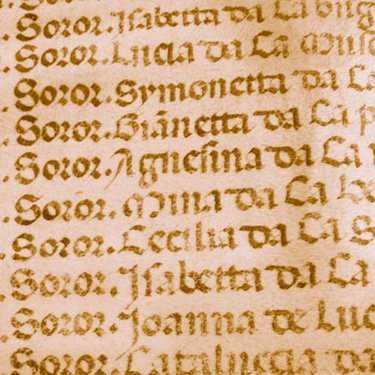 Soror. Isabetta da La
Soror. Lucia da La
. Soror. Symonetta da La
. Soror. Giãnetta da La
. Soror. Agnesina da La
. Soror. Mina da La
. Soror. Cecilia da La S
. Soror. Isabetta da La
. Soror. Joanna de Luc
Soror. Cataluccia da